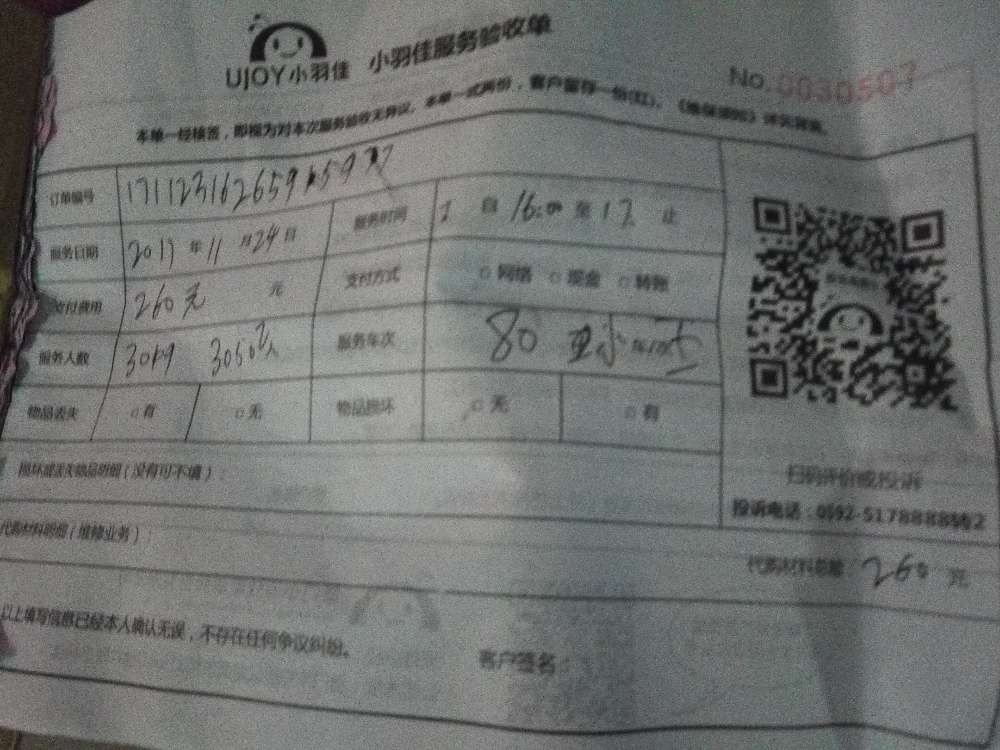 UJOY小羽佳 小羽佳服务验收单
No. 0030507
本单一经核签，即视为对本次服务验收无异议。本单一式两份，客户留存一份(红)。
订单编号
服务日期 2017年11月24日 服务时间 自16:00至17 止
支付费用 260元 元 支付方式 □网络 □现金 □转账
服务人数 服务车次 80
物品丢失 □有 □无 物品损坏 □无 □有
损坏或丢失物品明细（没有可不填）：
扫码评价或投诉
投诉电话：0592-5178888转2
代购材料明细（维修业务）：
代购材料总额 260 元
以上填写信息已经本人确认无误，不存在任何争议纠纷。
客户签名：